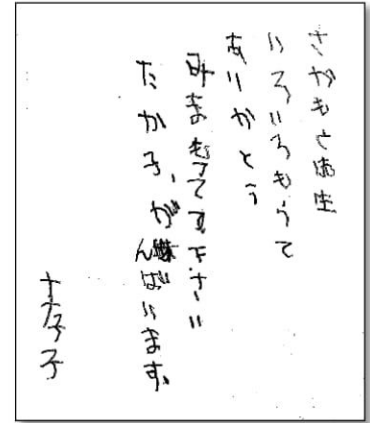 さかもと先生
いろいろもうて
ありかとう
みまもてて下さい
たか子、がんばいます。